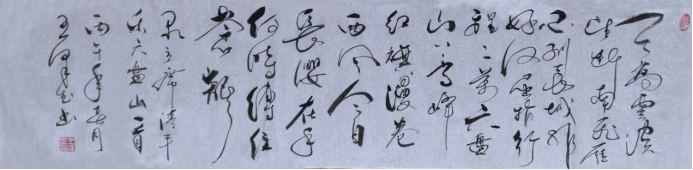 天高雲淡
望斷南飛雁
不到長城非
好汉屈指行
程二萬六盘
山上高峰
红旗漫卷
西风今日
長缨在手
何時縛住
蒼龍
录主席清平
乐六盘山一首
丙午年春月